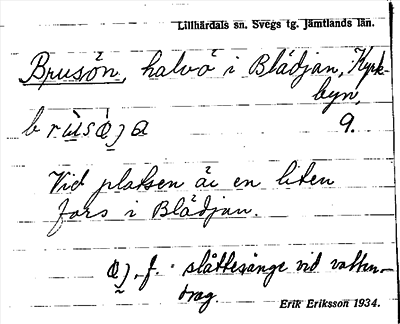 Lillhärdals sn. Svegs tg. Jämtlands län.
Brusön, halvö i Blädjan, Kyrk-
byn,
9.
Vid platsen är en liten
fors i Blädjan.
f. slåttesänge vid vatten-
drag.
Erik Eriksson 1934.